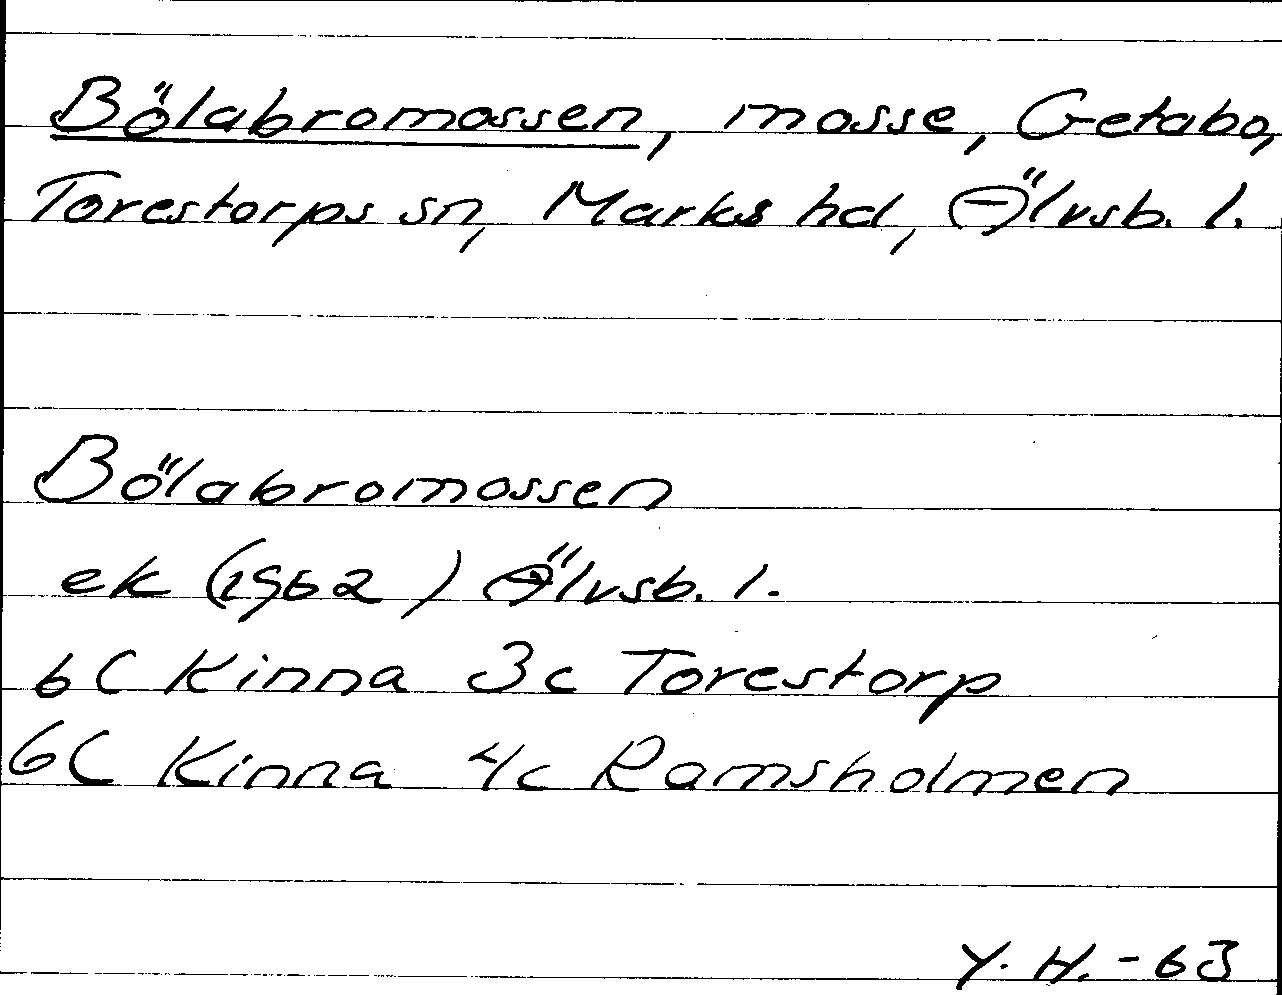 Bölabromossen, mosse, Getabo,
Torestorps sn, Marks hd, Älvsb. l.
Bölabromossen
ek (1962) Älvsb. l.
6C Kinna 3c Torestorp
6C Kinna 4c Ramsholmen
Y. H. -63